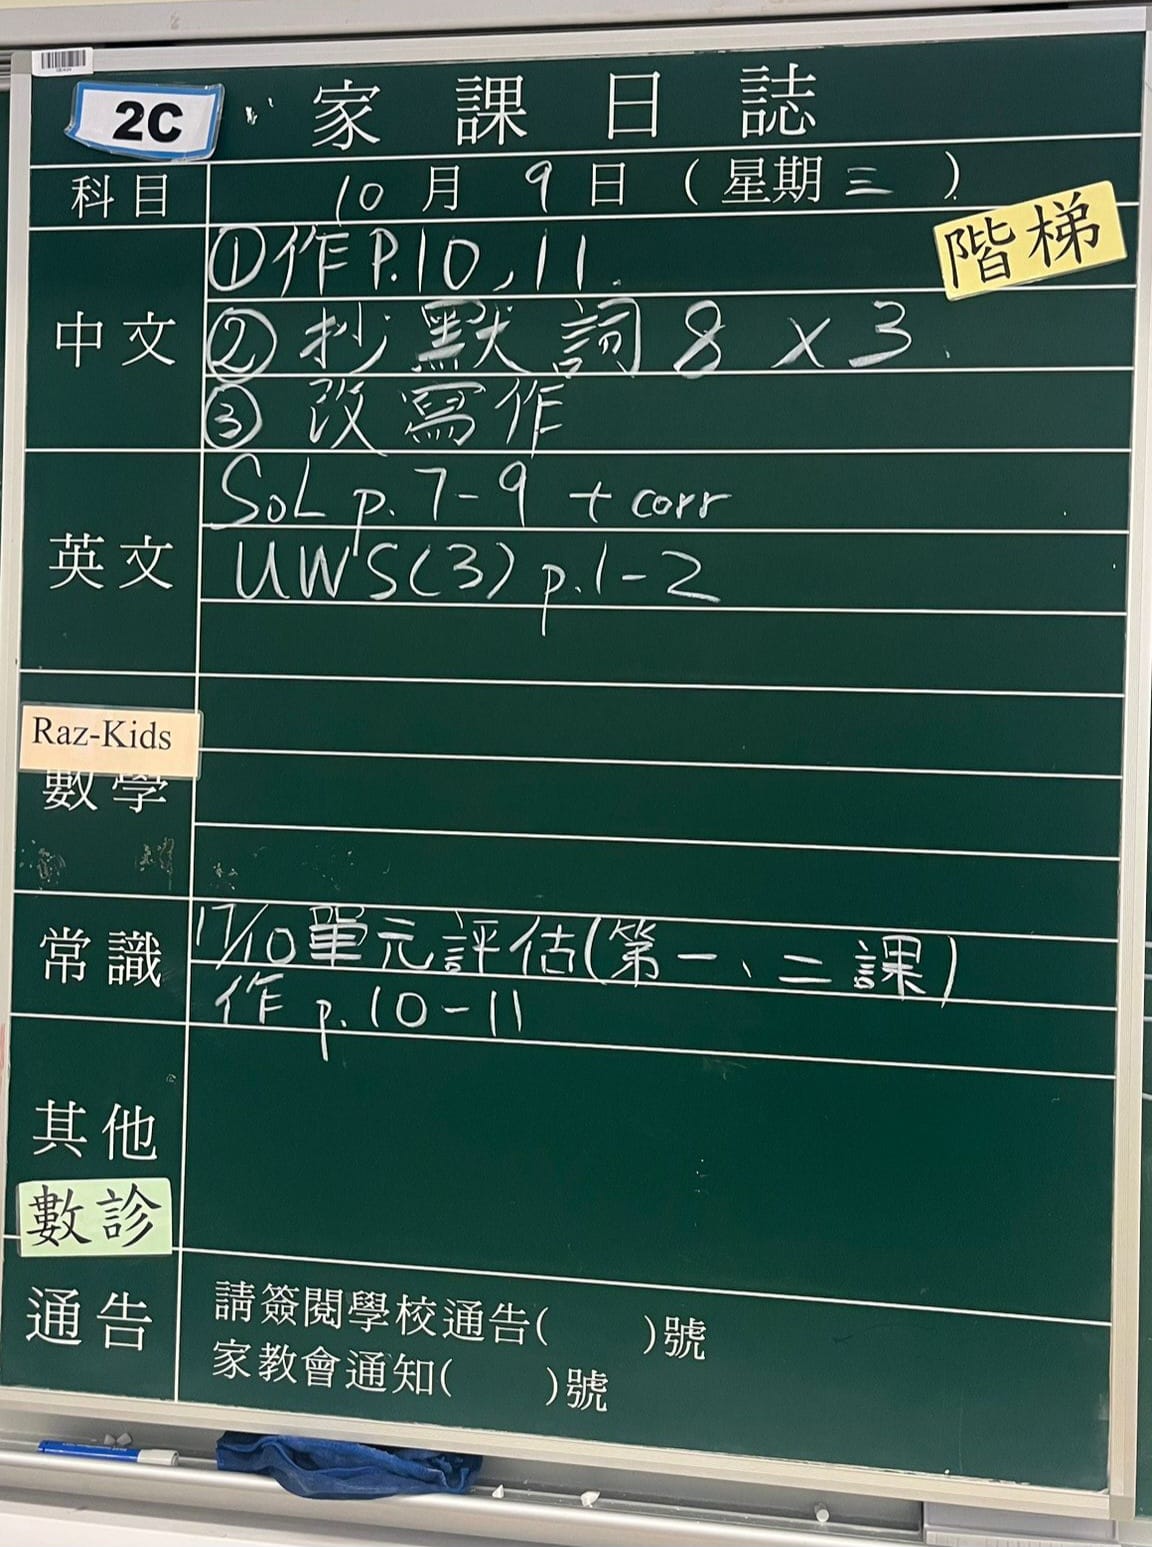 2C
家課日誌
科目 10月9日(星期三)
階梯
中文 ①作P.10,11.
②抄默詞8 x 3.
③改寫作
英文 SoL p.7-9 + corr
UWS(3) p.1-2
Raz-Kids
數學
常識 17/10單元評估(第一、二課)
作 p.10-11
其他
數診
通告 請簽閱學校通告( )號
家教會通知( )號